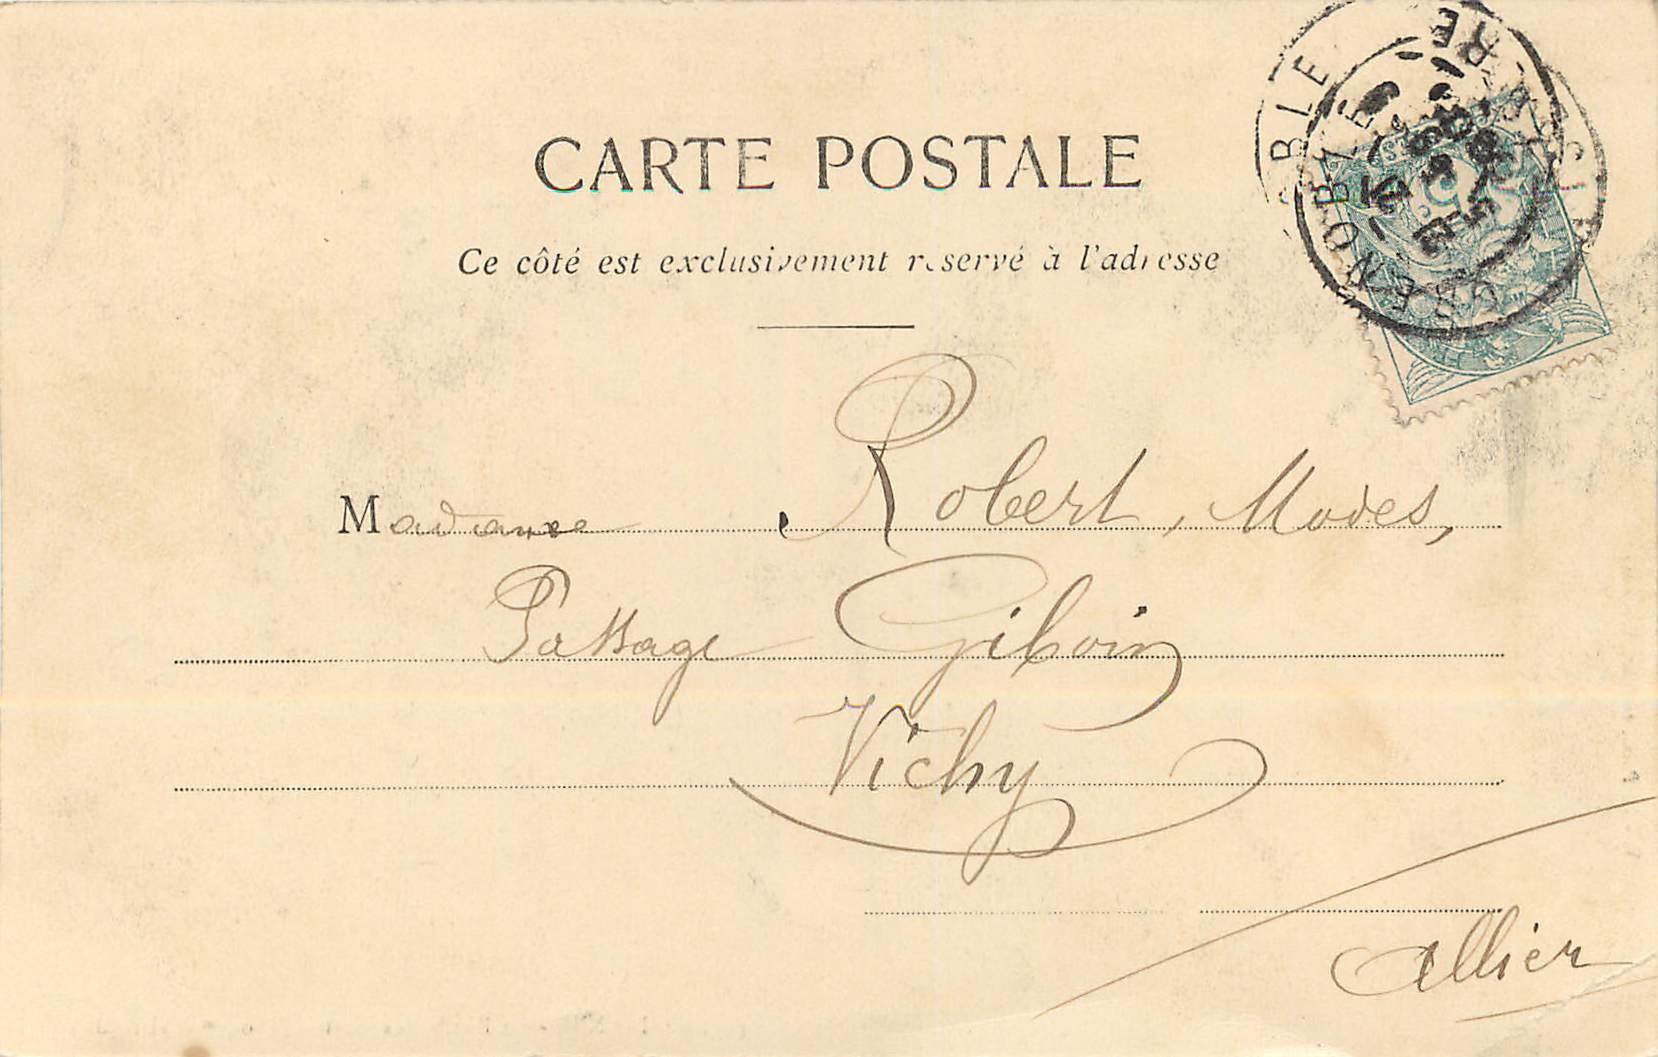 CARTE POSTALE
Ce côté est exclusivement réservé à l'adresse
Madame Robert, Modes,
Passage Giboin
Vichy
Allier
GRENOBLE
ISÈRE
5